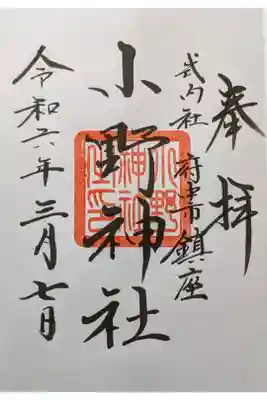 奉拝
式内社 府中市鎮座
小野神社
令和六年三月七日